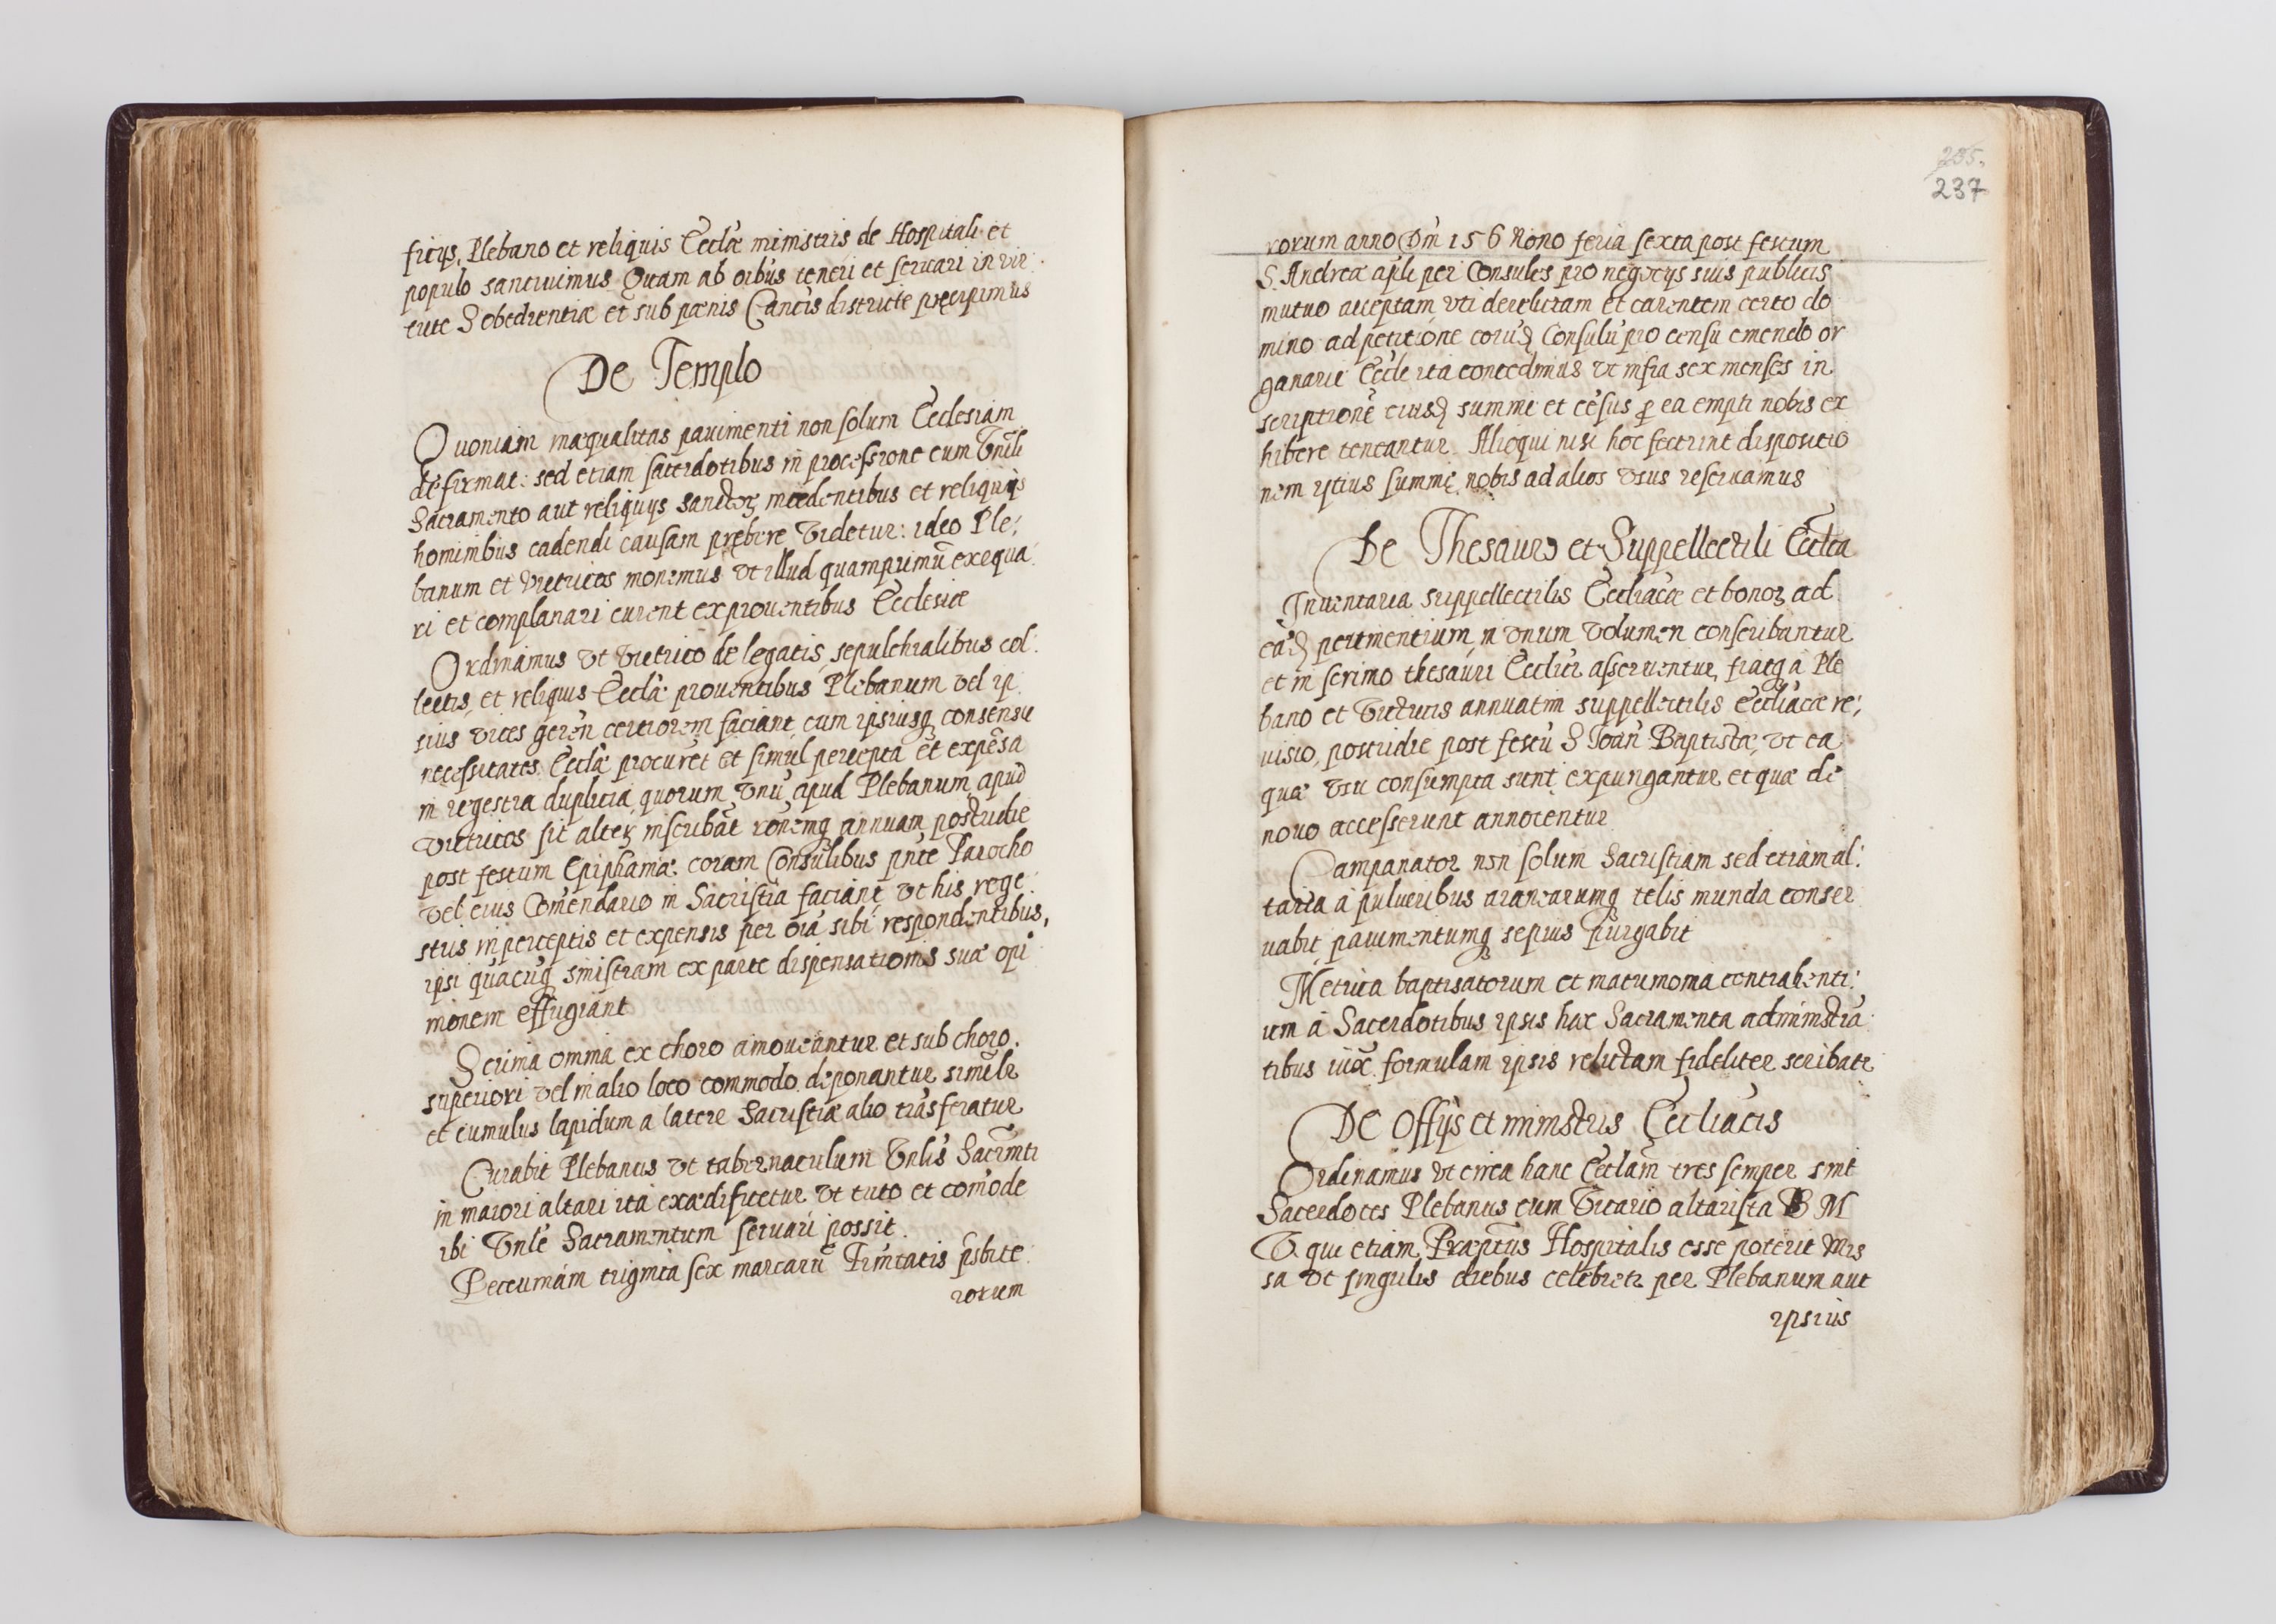 ficijs, Plebano et reliquis Ecclæ ministris de Hospitali et
populo sanciuimus Quam ab oibus teneri et seruari in vir
tute S obedientiæ et sub pœnis Cancis districte precipimus
De Templo
Quoniam inæqualitas pauimenti non solum Ecclesiam
defirmat: sed etiam sacerdotibus in processione cum Vnlili
Sacramento aut reliquijs sanctoꝝ incedentibus et reliquijs
hominibus cadendi causam prębere videtur: ideo Ple:
banum et vitricos monemus vt illud quamprimū exequa
ri et complanari curent ex prouentibus Ecclesiæ
Ordinamus vt vitrico de legatis, sepulchralibus col:
lectis, et reliquis Ecclæ prouentibus Plebanum vel ip
sius vices geren certiorem faciant, cum ipsiusq consensu
necessitates Ecclæ procuret et simul percepta et expēsa
in regestra duplicia, quorum vnū apud Plebanum, apud
vitricos sit alteꝝ inscribāt ronemq annuam postridie
post festum Epiphaniæ. coram Consulibus pnte Parocho
vel eius Comendario in Sacristia faciant vt his rege:
stris in perceptis et expensis per oia sibi respondentibus,
ipsi quacuq sinistram ex parte dispensationis suæ opi
nionem effugiant
Scrinia omnia ex choro amoueantur et sub choro.
superiori vel in alio loco commodo deponantur similr
et cumulus lapidum a latere Sacristiæ alio trāsferatur
Curabit Plebanus vt tabernaculum Vnlis Sacrmti
in maiori altari ita exædificetur vt tuto et comode
ibi Vnle Sacramentum seruari possit.
Pecuniam triginta sex marcarū Trinitatis psbite
rorum
205.
237
rorum anno Dni 156 Nono feria sexta post festum
S. Andreæ apli per Consules pro negocijs suis publicis
mutuo acceptam, vti derelictam et carentem certo do
mino ad petitione eorūd Consulū pro censu emendo or
ganarii Eccle ita concedimus vt infra sex menses in
scriptionē eiusd summe et cēsus ꝓ ea empti nobis ex
hibere teneantur. Alioqui nisi hoc fecerint dispositio
nem istius summę nobis ad alios vsus reseruamus
De Thesauro et Suppellectili Ecclca
Inuentaria suppellectilis Eccliacæ et bonoꝝ ad
eād pertinentium, in vnum volumen conscribantur
et in scrinio thesauri Ecclici asseruentur, fiatq a Ple
bano et Vitricis annuatim suppellectilis Eccliacæ re:
uisio, postridie post festū S Ioan Baptistæ, vt ea
quæ vsu consumpta sunt expungantur et quæ de
nouo accesserunt annotentur
Campanator non solum Sacristiam sed etiam al:
taria a pulueribus aranearumq telis munda conser
uabit, pauimentumq sepius purgabit
Metrica baptisatorum et matrimonia contrahenti:
um a Sacerdotibus ipsis hæc Sacramenta administrā
tibus iuxᵃ formulam ipsis relictam fideliter scribatr
De Offijs et ministris Eccliacis
Ordinamus vt circa hanc Ecclam tres semper sint
Sacerdotes Plebanus cum Vicario altarista B M
V. qui etiam Præptus Hospitalis esse poterit Mis
sa vt singulis diebus celebretr per Plebanum aut
ipsius